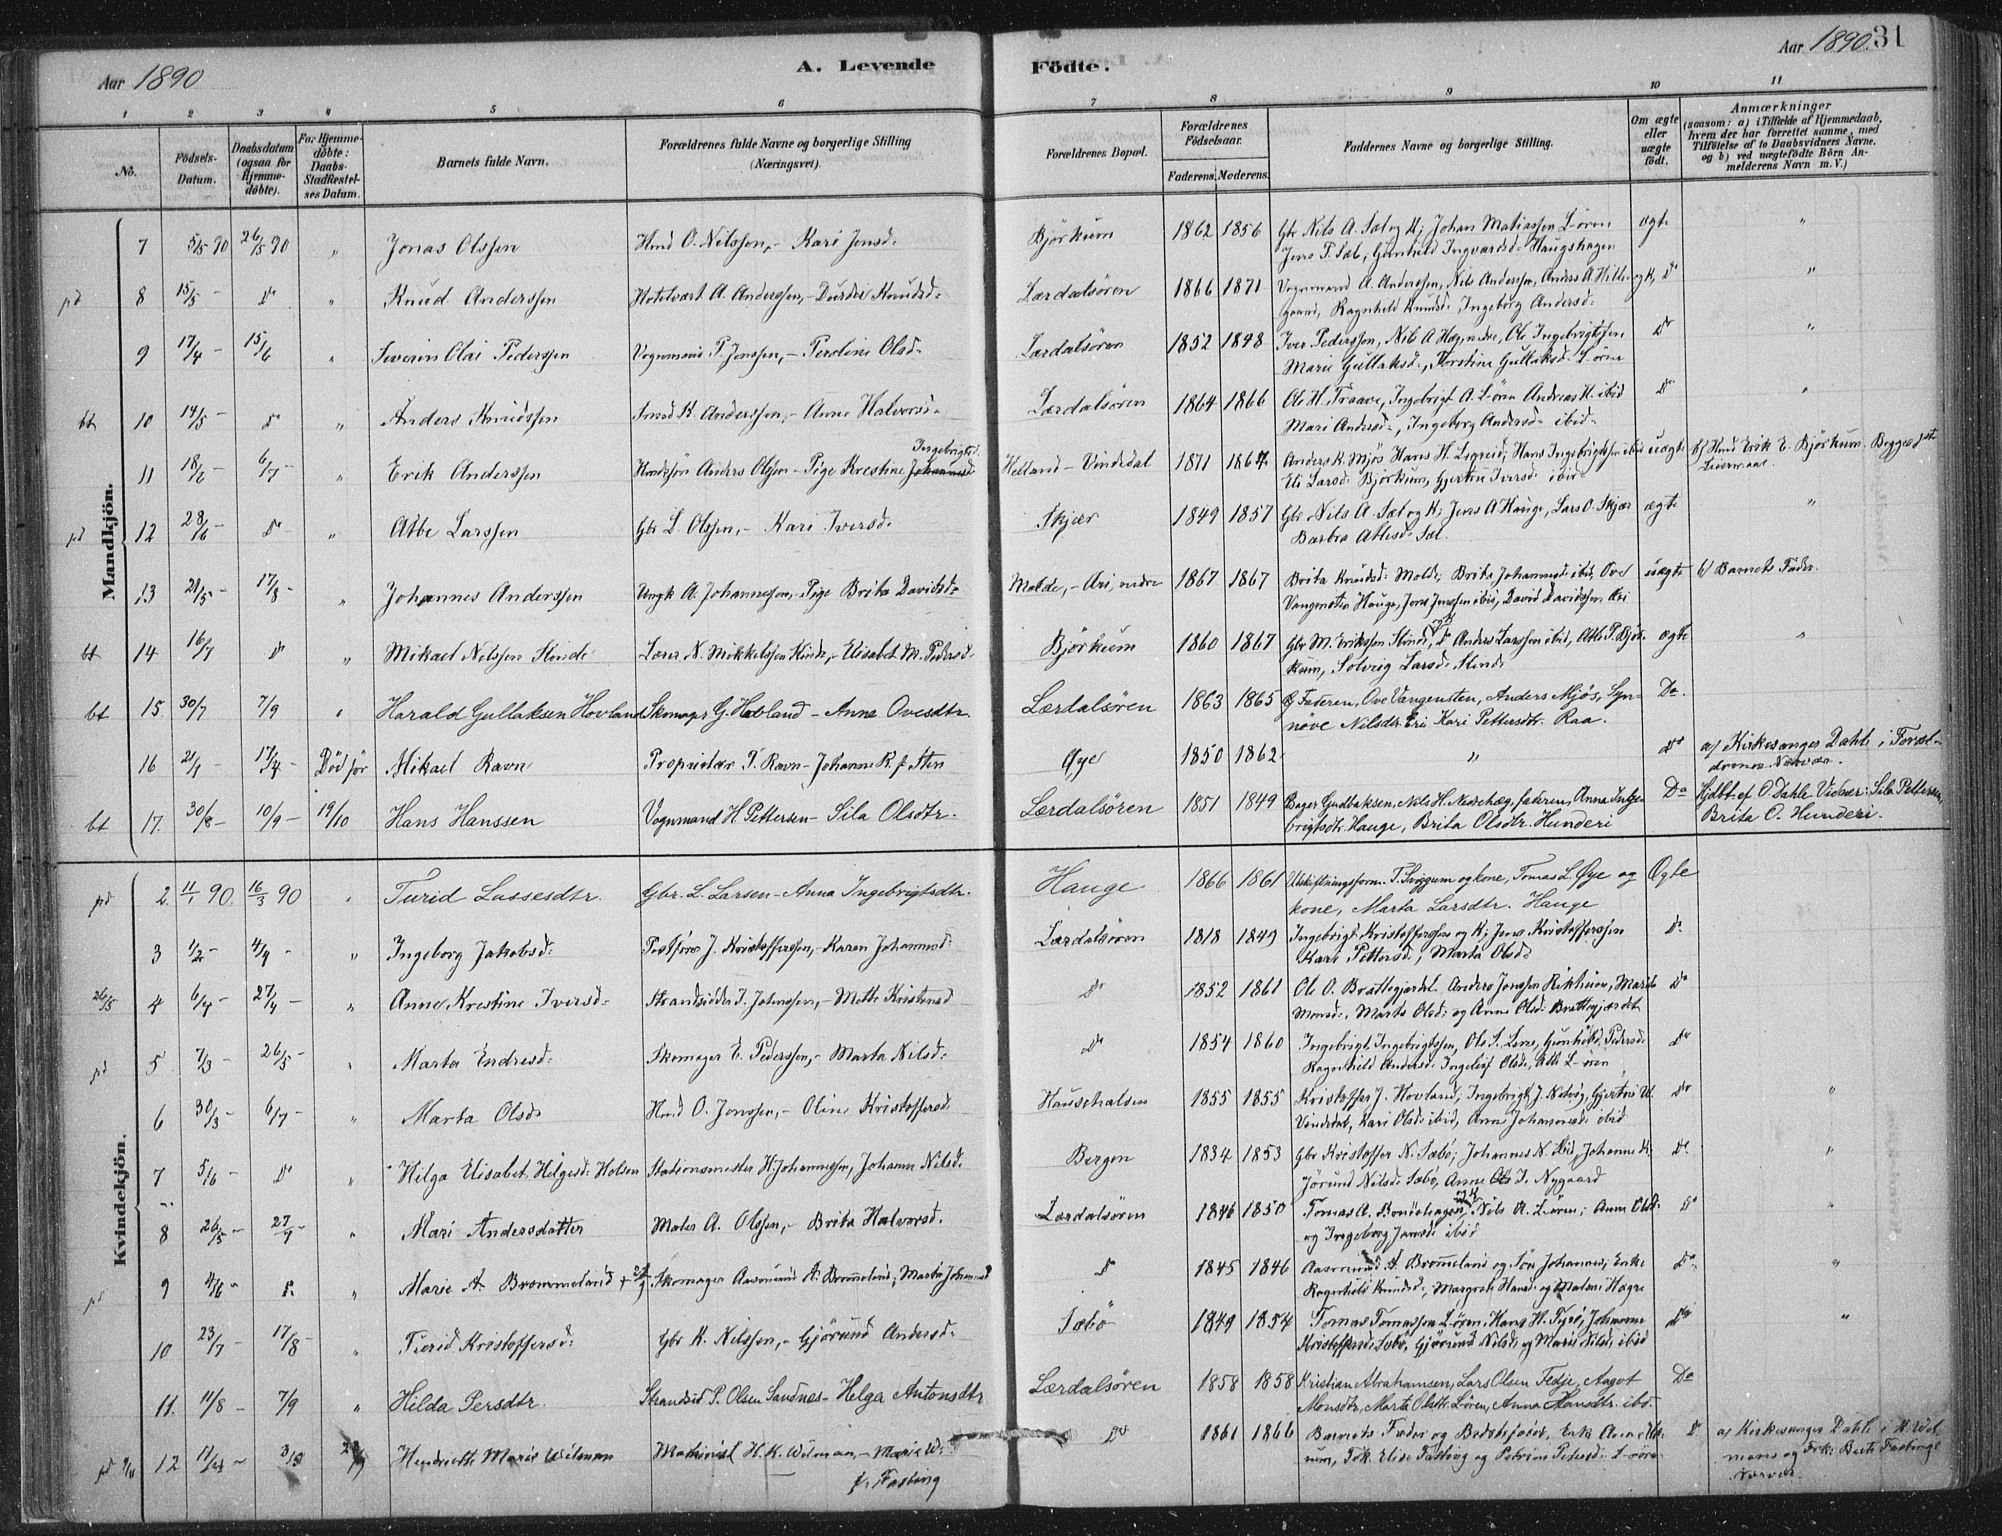 Aar 1890
A. Levende
Födte.
Aar 1890. 31
1 2 3 4 5 6 7 8 9 10 11
No.
Födsels-Datum.
Daabsdatum (ogsaa for Hjemmedöbte).
For Hjemmedöbte: Daabs-Stadfæstelses Datum.
Barnets fulde Navn.
Forældrenes fulde Navne og borgerlige Stilling (Næringsvei).
Forældrenes Bopæl.
Forældrenes Födselsaar.
Faderens. Moderens.
Faddernes Navne og borgerlige Stilling.
Om ægte eller uægte födt.
Anmærkninger (saasom: a) i Tilfælde af Hjemmedaab, hvem der har forrettet samme, med Tilföielse af to Daabsvidners Navne, og b) ved uægtefödte Börn Anmelderens Navn m. V.)
Mandkjön.
7 5/5 90 26/5 90 " Jonas Olssen Hmd O. Nilssen, - Kari Jensd. Björkum 1862 1856 Gbr Nils A. Sæl og K; Johan Matiassen L-ören ægte "
Jens T. Sæl, Gunhild Ingvardsd. Haugshagen
pd 8 15/5 - Do " Knud Anderssen A. Anderssen, - Durdei Knudsd. Lærdalsören 1866 1871 Vognmand A. Anderssen, Nils Anderssen, Do "
Ragnhild Knudsd. Ingeborg Andersd.
9 17/4 - 15/6 " Severin Olai Pederssen Vognmand P. Jenssen, - Peroline Olsd. Lærdalsören 1852 1848 Iver Pederssen, Nils A Ole Ingebrigtssen Do "
Marie Gullaksd., Gullaksd. L-ören
bt 10 14/5 - Do " Anders Knudssen Smed K. Anderssen, - Anne Halvorsd. Lærdalsören 1864 1866 Ole H. Traave, Ingebrigt A. L-ören Andreas K. ibid Do "
Mari Andersd., Ingeborg Andersd. ibid.
Ingebrigtsd.
11 18/6 6/7 - " Erik Anderssen Anders Olssen - Pige Krestine Johannesd Helland - Vindedal 1871 Anders K. Mjös Hans H. Hans Ingebrigtssen ibid uægte b/ Hmd Erik E. Björkum. Begges 1ste
Eli Larsd. Björkum, Gjertru Iversd. ibid Leiermaal.
pd 12 28/6 - Do " Atle Larssen Gbr L. Olssen, - Kari Iversd. Skjær 1849 1857 Gbr Nils A. Sæl og K; Jens A Hauge, Lars O. Skjær ægte "
Barbra Atlesd. Sæl.
13 21/5 - 17/8 - " Johannes Anderssen Ungk A. Johannessen, - Pige Brita Davidsd. Molde, - Æri, nedre 1867 1867 Brita Knudsd. Molde, Brita Johannesd. ibid, Ove uægte b/ Barnets Fader.
Vangensten Hauge, Jens Jenssen ibid, David Davidssen Æri
bt 14 16/7 Do " Mikael Nilssen Hinde Lærer N. Mikkelssen Hinde, - Elisabet M. Pedersd. Björkum 1860 1867 Gbr M. Erikssen Hinde, Anders Larssen ibid, Atle P. Björ- ægte "
kum, Solveig Larsd. Hinde
bt 15. 30/7 7/9 " Harald Gullaksen Hovland Skomager G. Hovland - Anna Ovesdtr. Lærdalsören 1863 1865 Faderen, Ove Vangensten, Anders Mjös, Syn- Do.
növe Nilsdtr. Eri Kari Pettersdtr. Raa.
16 21/1 - 17/4 - Död för Mikael Ravn Proprietær P. Ravn - Johanne R. f. Sten Öye 1850 1862 " Do a/ Kirkesanger Dahle i Foræl-
drenes Nærvær.
bt 17. 30/8 - 10/9 - 19/10 Hans Hanssen Vognmand H. Pettersen - Sila Olsdtr. Lærdalsören 1851 1849 Bager Gudbaksen, Nils H. faderen, Anna Inge- Do Hjdbt. af O. Dahle Vidner: Sila Pettersen,
brigtsdtr. Hauge, Brita Olsdtr. Hunderi Brita O. Hunderi.
Kvindekjön.
pd 2. 11/1 90. 16/3 90 " Turid Lassesdtr. Gbr. L. Larsen - Anna Ingebrigtsdtr. Hauge 1866 1861 Utskiftningsform. T. og kone, Tomas L. Öye og Ægte
kone, Marta Larsdtr. Hauge
3 1/2 - 4/4 - " Ingeborg Jakobsd. J. Kristofferssen, - Karen Johannesd. Lærdalsören 1818 1849 Ingebrigt Kristofferssen og K; Jens Kristofferssen Do
Kari Pettersd., Marta Olsd.
26/5 4 6/4 - 27/4 - " Anne Krestine Iversd. Strandsidder I. Johnssen, - Mette Kristensd Do 1852 1861 Ole O. Brattegjerdet Anders Jonssen Marit Do
Monsd., Marta Olsd. og Anne Olsd. Brattegjerdet
pd 5 7/3 - 26/5 - " Marta Endresd. Skomager E. Pederssen, - Marta Nilsd. Do 1854 1860 Ingebrigt Ingebrigtssen, Ole S. Lene, Gunhild Pedersd. Do
Ragnhild Andersd. Ingeleif Olsd. Atle L-ören
6 30/3 - 6/7 - " Marta Olsd. Hmd O. Jonssen, - Oline Kristoffersd. 1855 1855 Kristoffer J. Hovland, Ingebrigt J. Gjertru Do "
Vindedal, Kari Olsd. ibid, Anne Johannesd. ibid
7 5/6 - Do " Helga Elisabet Helgesd. Holsen Stationsmester H. Johannessen, Johanne Nilsd. Bergen 1834 1853 Gbr Kristoffer N. Sæbö; Johannes N. ibid, Johanne K. Do "
Jörund Nilsd. Sæbö, Anne I. Nygaard
8 26/5 - 27/7 " Mari Andersdatter Maler A. Olssen, - Brita Halvorsd. Lærdalsören 1846 1850 Tomas A. Nils A. L-ören; Anne Olsd. Do "
og Ingeborg Jansd. ibid
pd 9 4/6 - Do " Marie A. Brommeland Skomager Aasmund A. Brommeland, Marta Johannesd Do 1845 1846 Aasmund A. Brommeland og Sön Johannes; Enke Do "
Ragnhild Knudsd., Margrete Hansd. og Malene Hagre
10 23/7 - 17/8 - " Turid Kristoffersd. Gbr K. Nilssen, - Gjörund Andersd. Sæbö 1849 1854 Tomas Tomassen L-ören Hans H. Johanne Do "
Kristoffersd. Sæbö, Gjörund Nilsd. og Marie Nilsd. ibid
11. 11/8 - 7/9 " Hilda Persdtr. Strandsid P. Olsen Sandnes - Helga Antonsdtr Lærdalsören 1858 1858 Kristian Abrahamsen, Lars Olsen Fedje, Aagot Do
Monsdtr, Marta Olsdtr. Lören, Anna Hansdtr. ibd.
pd 12 Henriette Marie Wilmann H. K. Wilman, - Marie W. f. Fasting Do 1861 1866 Barnets Fader og Do a/ Kirkesanger Dahle i
Frk. Elise Fasting og Petrine Pedersd. L-ören Frk. Berte Fastings
Nærvær.